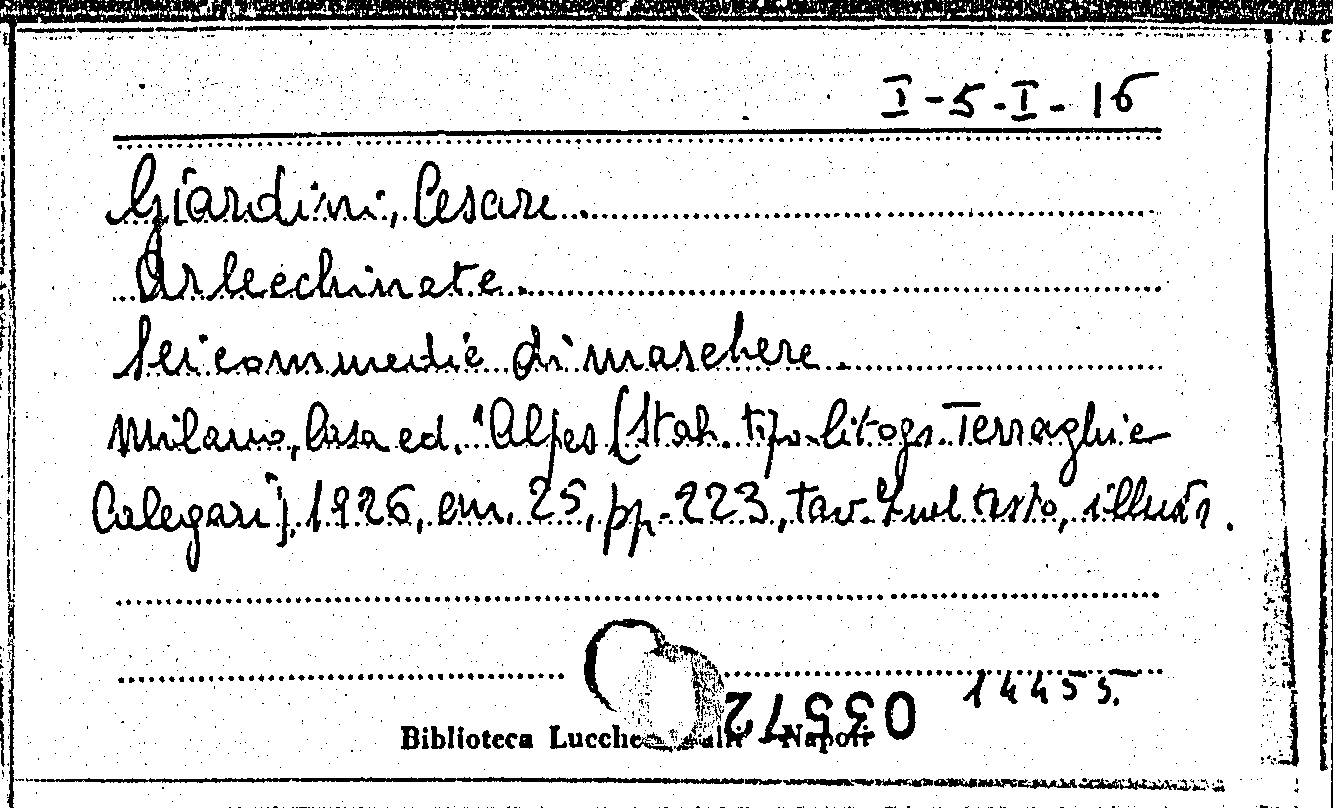 I-5-I-16
Giardini, Cesare
Arlecchinate.
Sei commedie di maschere.
Milano, Casa ed. "Alpes (Stab. tipo-litogr. Terraghi e
Calegari), 1926, cm. 25, pp. 223, tav. nel testo, illustr.
14455.
035572
Biblioteca Napoli